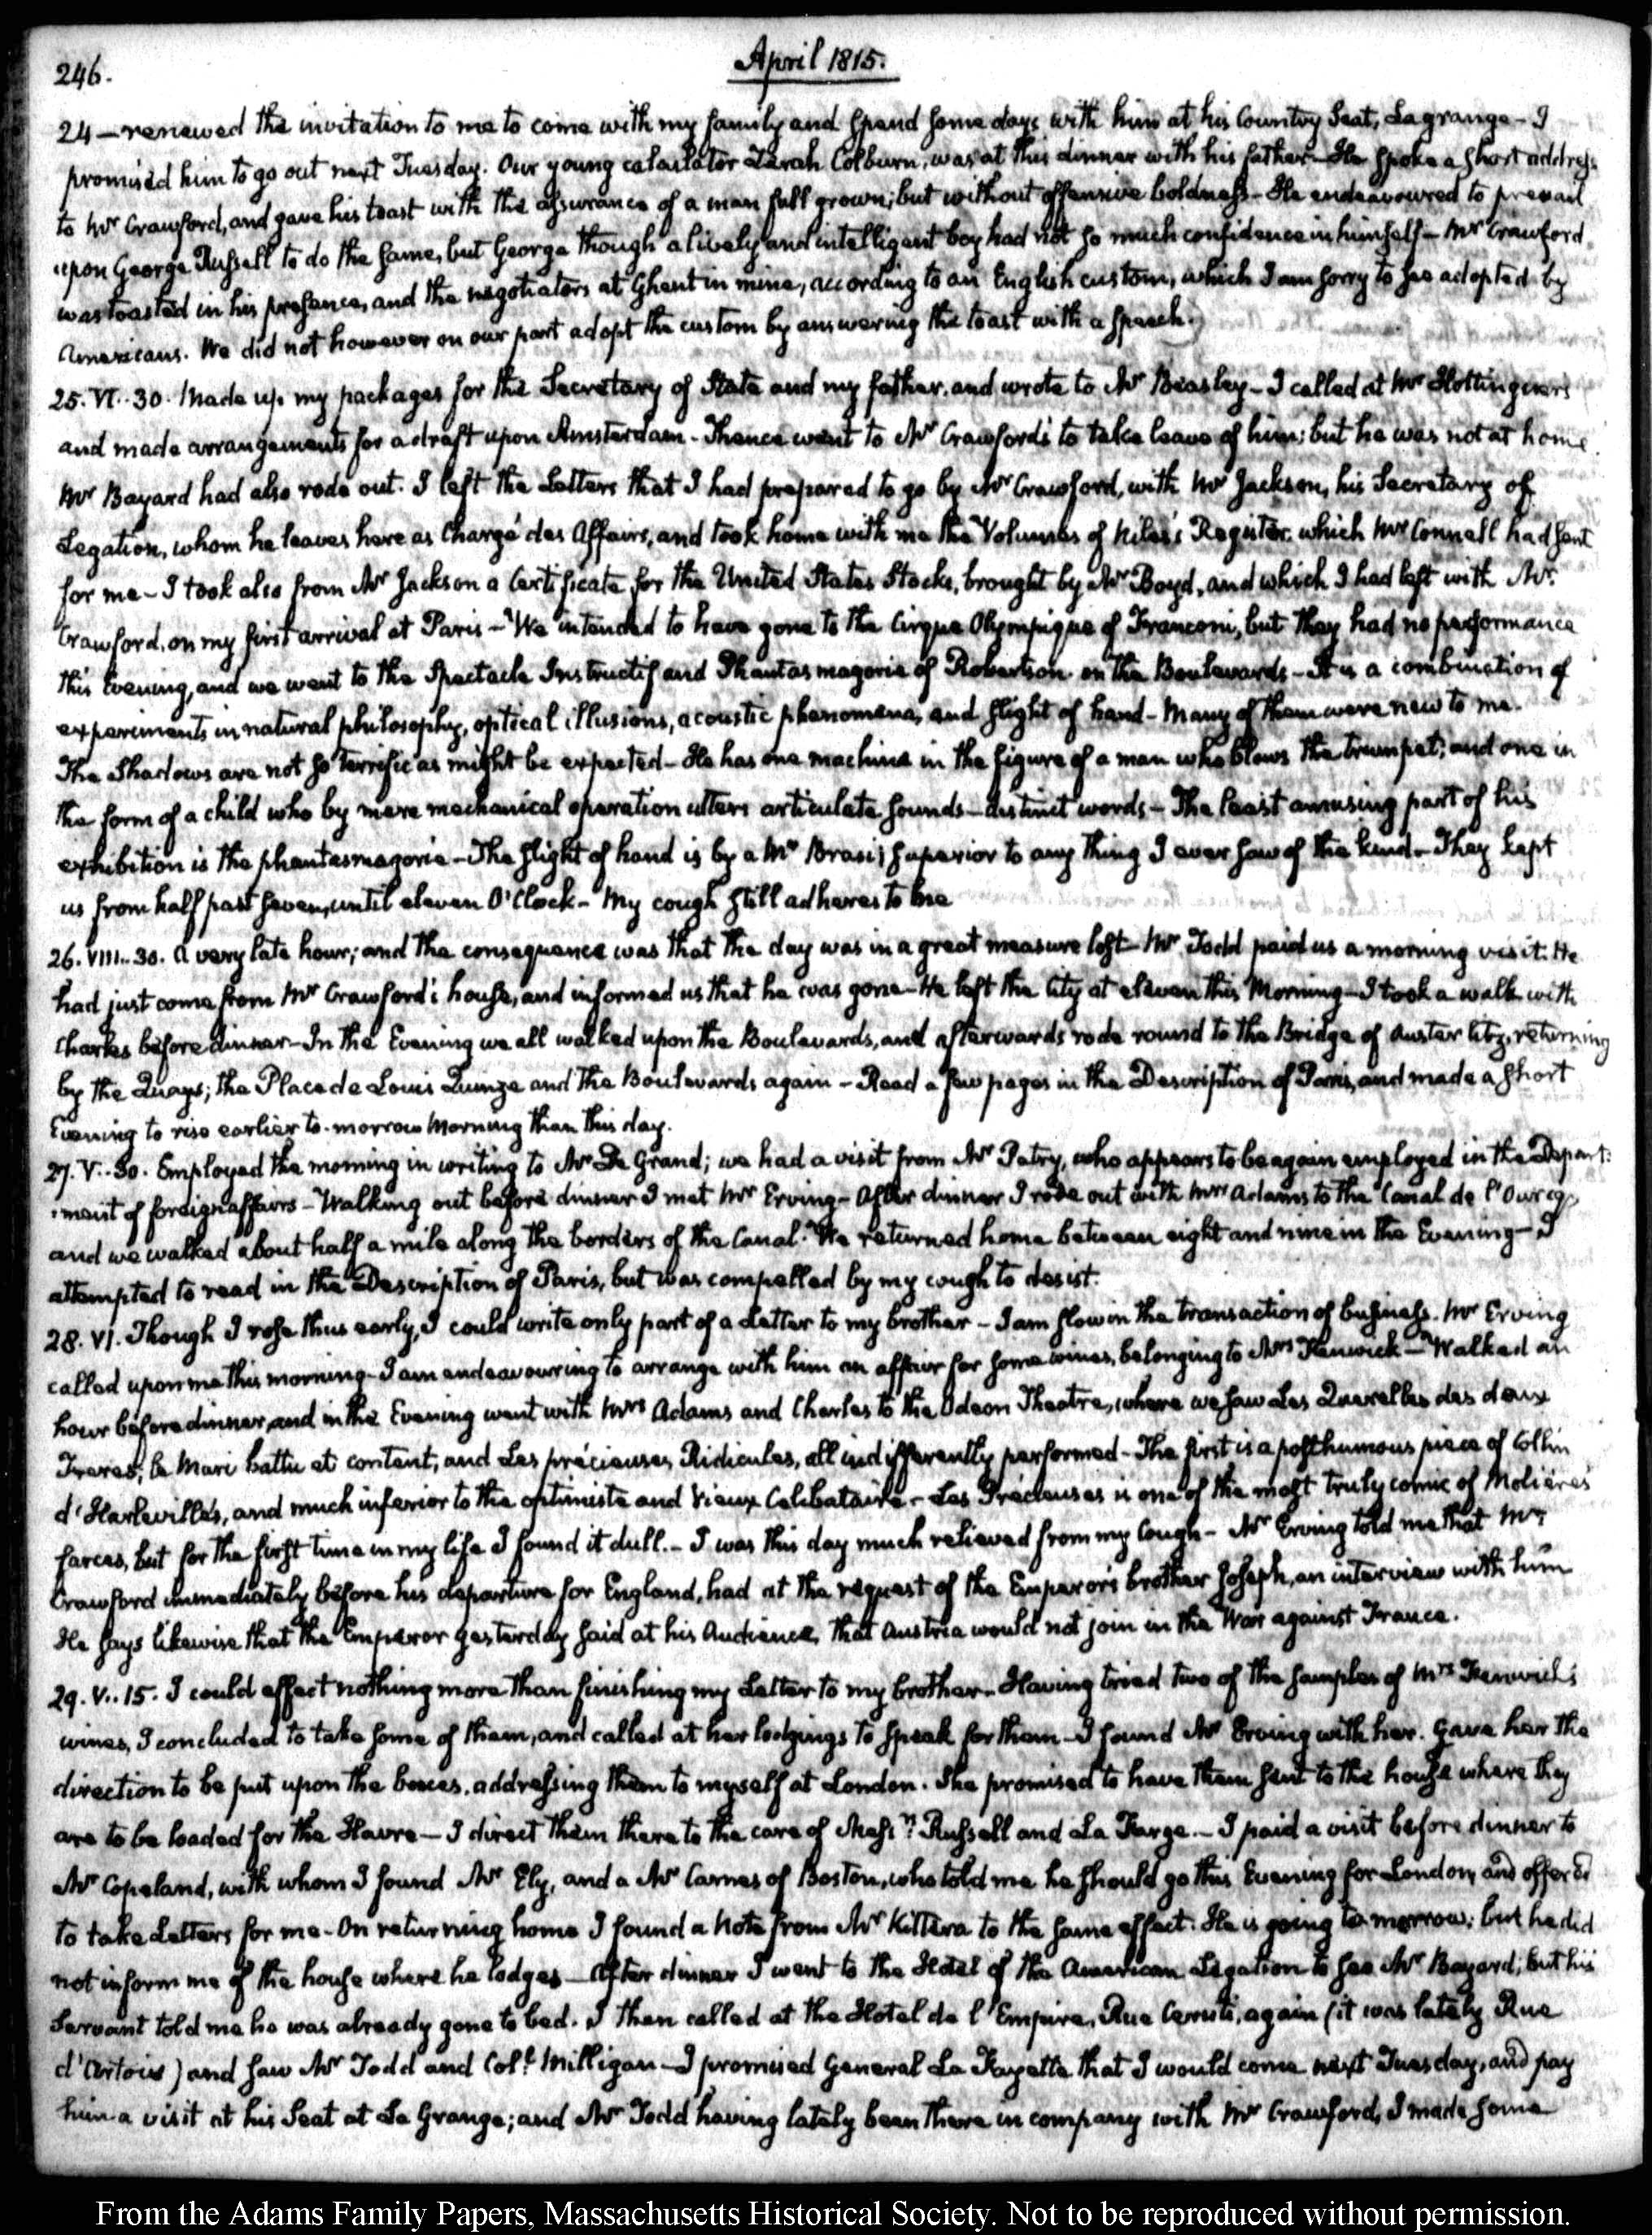 246.
April 1815.
24 — renewed the invitation to me to come with my family and spend some days with him at his Country Seat, Lagrange — I
promised him to go out next Tuesday. Our young calculator Zerah Colburn, was at this dinner with his father — He spoke a short address
to Mr Crawford, and gave his toast with the assurance of a man full grown; but without offensive boldness — He endeavoured to prevail
upon George Russell to do the same, but George though a lively and intelligent boy had not so much confidence in himself — Mr Crawford
was toasted in his presence, and the negotiators at Ghent in mine, according to an English custom, which I am sorry to see adopted by
Americans. We did not however on our part adopt the custom by answering the toast with a speech.
25. VI..30. Made up my packages for the Secretary of State and my father, and wrote to Mr Beasley — I called at Mr Hottinguer's
and made arrangements for a draft upon Amsterdam — Thence went to Mr Crawford's to take leave of him; but he was not at home
Mr Bayard had also rode out. I left the Letters that I had prepared to go by Mr Crawford, with Mr Jackson, his Secretary of
Legation, whom he leaves here as Chargé des Affairs, and took home with me the Volumes of Niles's Register which Mr Connell had sent
for me — I took also from Mr Jackson a Certificate for the United States Stocks, brought by Mr Boyd, and which I had left with Mr
Crawford, on my first arrival at Paris — We intended to have gone to the Cirque Olympique of Franconi, but they had no performance
this Evening, and we went to the Spectacle Instructif and Phantasmagorie of Robertson on the Boulevards — It is a combination of
experiments in natural philosophy, optical illusions, acoustic phenomena, and slight of hand — Many of them were new to me.
The Shadows are not so terrific as might be expected — He has one machine in the figure of a man who blows the trumpet; and one in
the form of a child who by mere mechanical operation utters articulate sounds — distinct words — The least amusing part of his
exhibition is the phantasmagoria — The slight of hand is by a Mr Brasi; superior to any thing I ever saw of the kind — They kept
us from half past seven, until eleven O'Clock — My cough still adheres to me
26. VIII..30. A very late hour; and the consequence was that the day was in a great measure lost — Mr Todd paid us a morning visit. He
had just come from Mr Crawford's house, and informed us that he was gone — He left the City at eleven this Morning — I took a walk with
Charles before dinner — In the Evening we all walked upon the Boulevards, and afterwards rode round to the Bridge of Austerlitz, returning
by the Quays; the Place de Louis Quinze and the Boulevards again — Read a few pages in the Description of Paris, and made a short
Evening to rise earlier to-morrow Morning than this day.
27. V..30. Employed the morning in writing to Mr De Grand; we had a visit from Mr Petry, who appears to be again employed in the Depart:
:ment of foreign affairs — Walking out before dinner I met Mr Erving — After dinner I rode out with Mrs Adams to the Canal de l'Ourcq,
and we walked about half a mile along the borders of the Canal. We returned home between eight and nine in the Evening — I
attempted to read in the Description of Paris, but was compelled by my cough to desist.
28. VI. Though I rose thus early, I could write only part of a Letter to my brother — I am slow in the transaction of business. Mr Erving
called upon me this morning — I am endeavouring to arrange with him an affair for some wines, belonging to Mrs Fenwick — Walked an
hour before dinner, and in the Evening went with Mrs Adams and Charles to the Odeon Theatre, where we saw Les Querelles des deux
Freres; le Mari battu et content; and Les précieuses Ridicules, all indifferently performed — The first is a posthumous piece of Collin
d'Harleville's, and much inferior to the optimiste and Vieux Celibataire — Les Precieuses is one of the most truly comic of Moliere's
farces, but for the first time in my life I found it dull. — I was this day much relieved from my Cough — Mr Erving told me that Mr
Crawford immediately before his departure for England, had at the request of the Emperor's brother Joseph, an interview with him
He says likewise that the Emperor yesterday said at his Audience, that Austria would not join in the War against France.
29. V..15. I could effect nothing more than finishing my Letter to my brother — Having tried two of the samples of Mrs Fenwick's
wines, I concluded to take some of them, and called at her lodgings to speak for them — I found Mr Erving with her. Gave her the
direction to be put upon the boxes, addressing them to myself at London. She promised to have them sent to the house where they
are to be loaded for the Havre — I direct them there to the care of Messrs Russell and La Farge. — I paid a visit before dinner to
Mr Copeland, with whom I found Mr Ely, and a Mr Carnes of Boston, who told me he should go this Evening for London, and offered
to take Letters for me — On returning home I found a Note from Mr Kittera to the same effect. He is going to-morrow; but he did
not inform me of the house where he lodges — After dinner I went to the Hotel of the American Legation to see Mr Bayard; but his
Servant told me he was already gone to bed. I then called at the Hotel de l'Empire, Rue Cerruti, again (it was lately Rue
d'Artois) and saw Mr Todd and Coll. Milligan — I promised General La Fayette that I would come next Tuesday, and pay
him a visit at his Seat at La Grange; and Mr Todd having lately been there in company with Mr Crawford, I made some
From the Adams Family Papers, Massachusetts Historical Society. Not to be reproduced without permission.